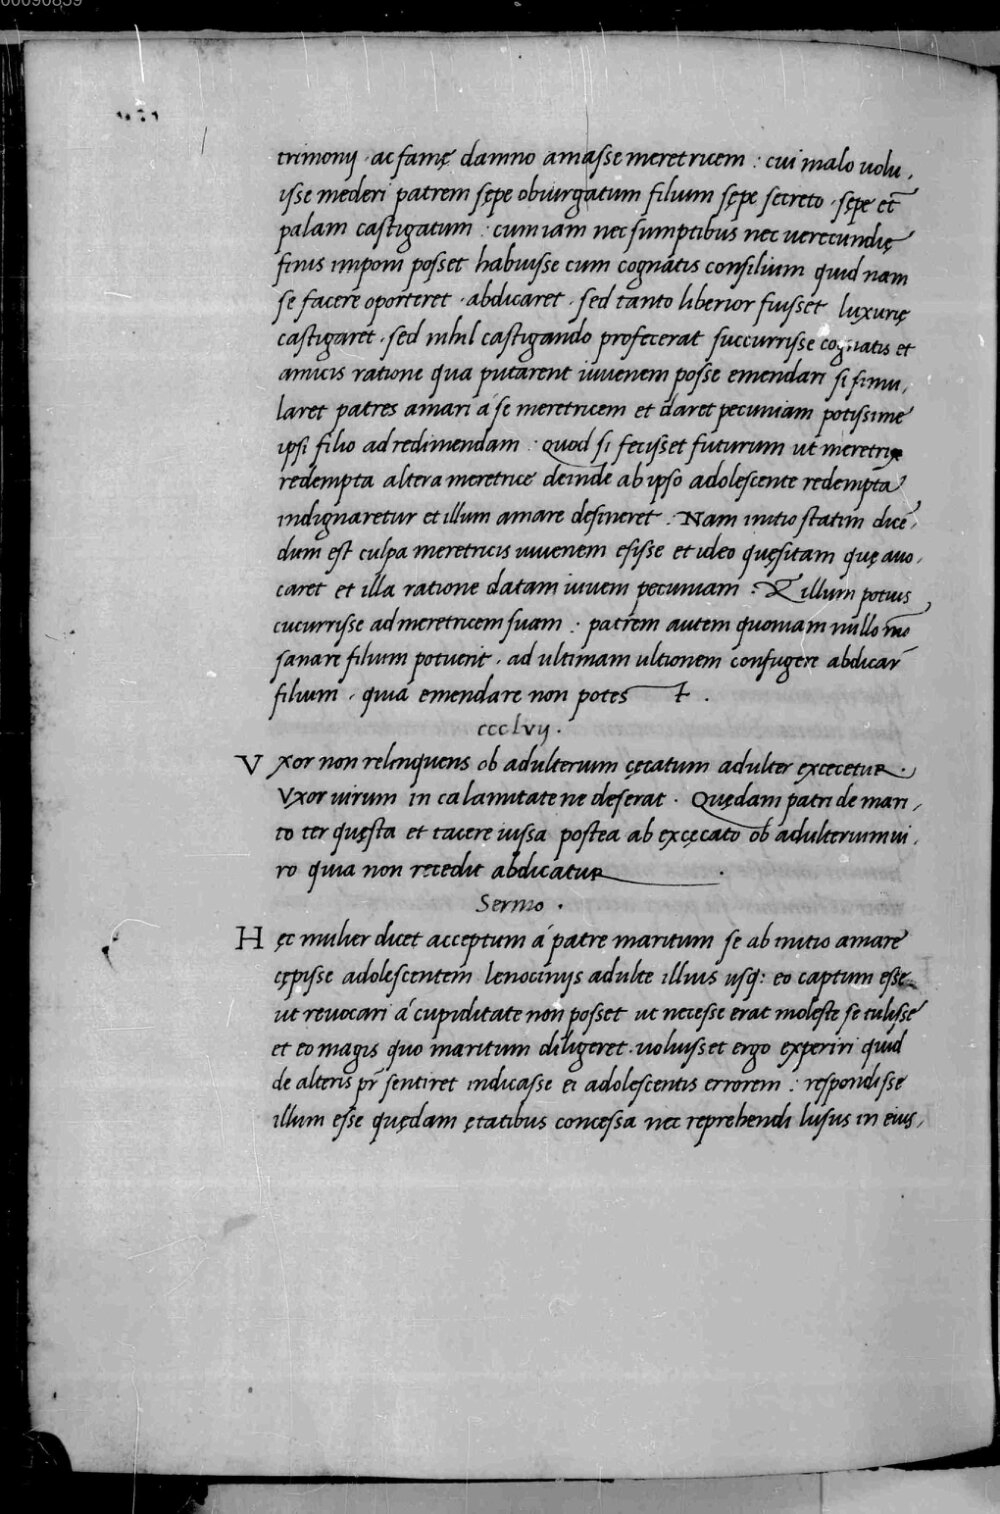 00090859
trimonij · ac famę damno amasse meretricem : cui malo uolu,
isse mederi patrem sępe obiurgatum filium sępe secreto · sępe et
palam castigatum : cum iam nec sumptibus nec uerecundię
finis imponi posset habuisse cum cognatis consilium quid nam
se facere oporteret · abdicaret · sed tanto liberior fuisset luxurię
castigaret · sed nihil castigando profecerat succurrisse cognatis et
amicis ratione qua putarent iuuenem posse emendari si simu,
laret patres amari á se meretricem et daret pecuniam potissime
ipsi filio ad redimendam : quod si fecisset futurum ut meretrix
redempta altera meretrice deinde ab ipso adolescente redempta
indignaretur et illum amare desineret : Nam initio statim dicē,
dum est culpa meretricis iuuenem efisse et ideo quęsitam quę auo,
caret et illa ratione datam iuueni pecuniam : Et illum potius
cucurrisse ad meretricem suam : patrem autem quoniam nullo mō
sanare filium potuerit · ad ultimam ultionem confugere abdicar̄
filium · quia emendare non potest .
ccclvij .
Vxor non relinquens ob adulterium cęcatum adulter excecetur .
Vxor uirum in calamitate ne deserat · Quędam patri de mari,
to ter quęsta et tacere iussa postea ab excęcato ob adulterium ui,
ro quia non recedit abdicatur .
Sermo .
Hęc mulier dicet acceptum á patre maritum se ab initio amare
cępisse adolescentem lenocinijs adulte illius usq: eo captum esse
ut reuocari á cupiditate non posset ut necesse erat moleste se tulisse
et eo magis quo maritum diligeret · uoluisset ergo experiri quid
de alteris pr̄ sentiret indicasse ei adolescentis errorem : respondisse
illum esse quędam ętatibus concessa nec reprehendi lusus in eius,